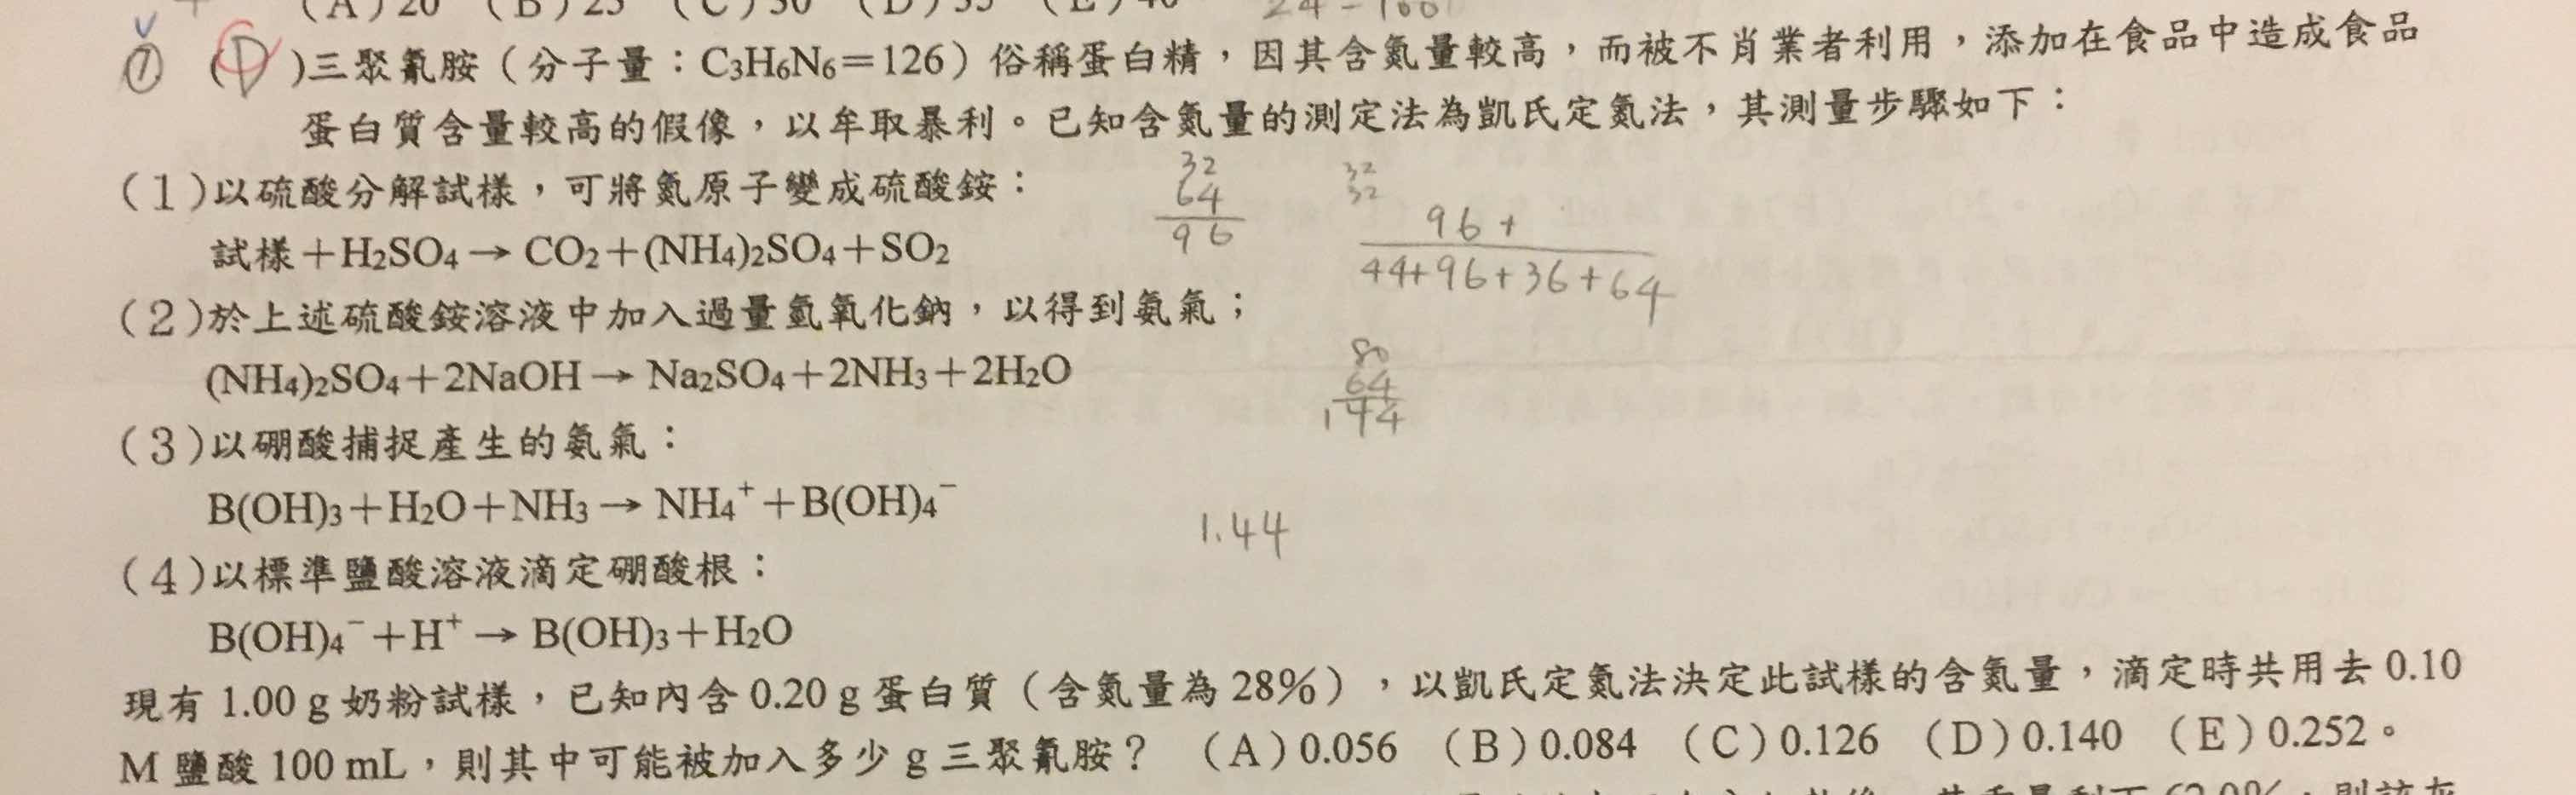 (A)20 (B)25 (C)30 (D)35 (E)40 24-100
⑦ (D)三聚氰胺（分子量：C₃H₆N₆＝126）俗稱蛋白精，因其含氮量較高，而被不肖業者利用，添加在食品中造成食品
蛋白質含量較高的假像，以牟取暴利。已知含氮量的測定法為凱氏定氮法，其測量步驟如下：
(1)以硫酸分解試樣，可將氮原子變成硫酸銨：
試樣＋H₂SO₄→CO₂＋(NH₄)₂SO₄＋SO₂
32
64
96
32
32
96+
44+96+36+64
(2)於上述硫酸銨溶液中加入過量氫氧化鈉，以得到氨氣；
(NH₄)₂SO₄＋2NaOH→Na₂SO₄＋2NH₃＋2H₂O
80
64
144
(3)以硼酸捕捉產生的氨氣：
B(OH)₃＋H₂O＋NH₃→NH₄⁺＋B(OH)₄⁻
1.44
(4)以標準鹽酸溶液滴定硼酸根：
B(OH)₄⁻＋H⁺→B(OH)₃＋H₂O
現有 1.00 g 奶粉試樣，已知內含 0.20 g 蛋白質（含氮量為 28%），以凱氏定氮法決定此試樣的含氮量，滴定時共用去 0.10
M 鹽酸 100 mL，則其中可能被加入多少 g 三聚氰胺？ (A)0.056 (B)0.084 (C)0.126 (D)0.140 (E)0.252。